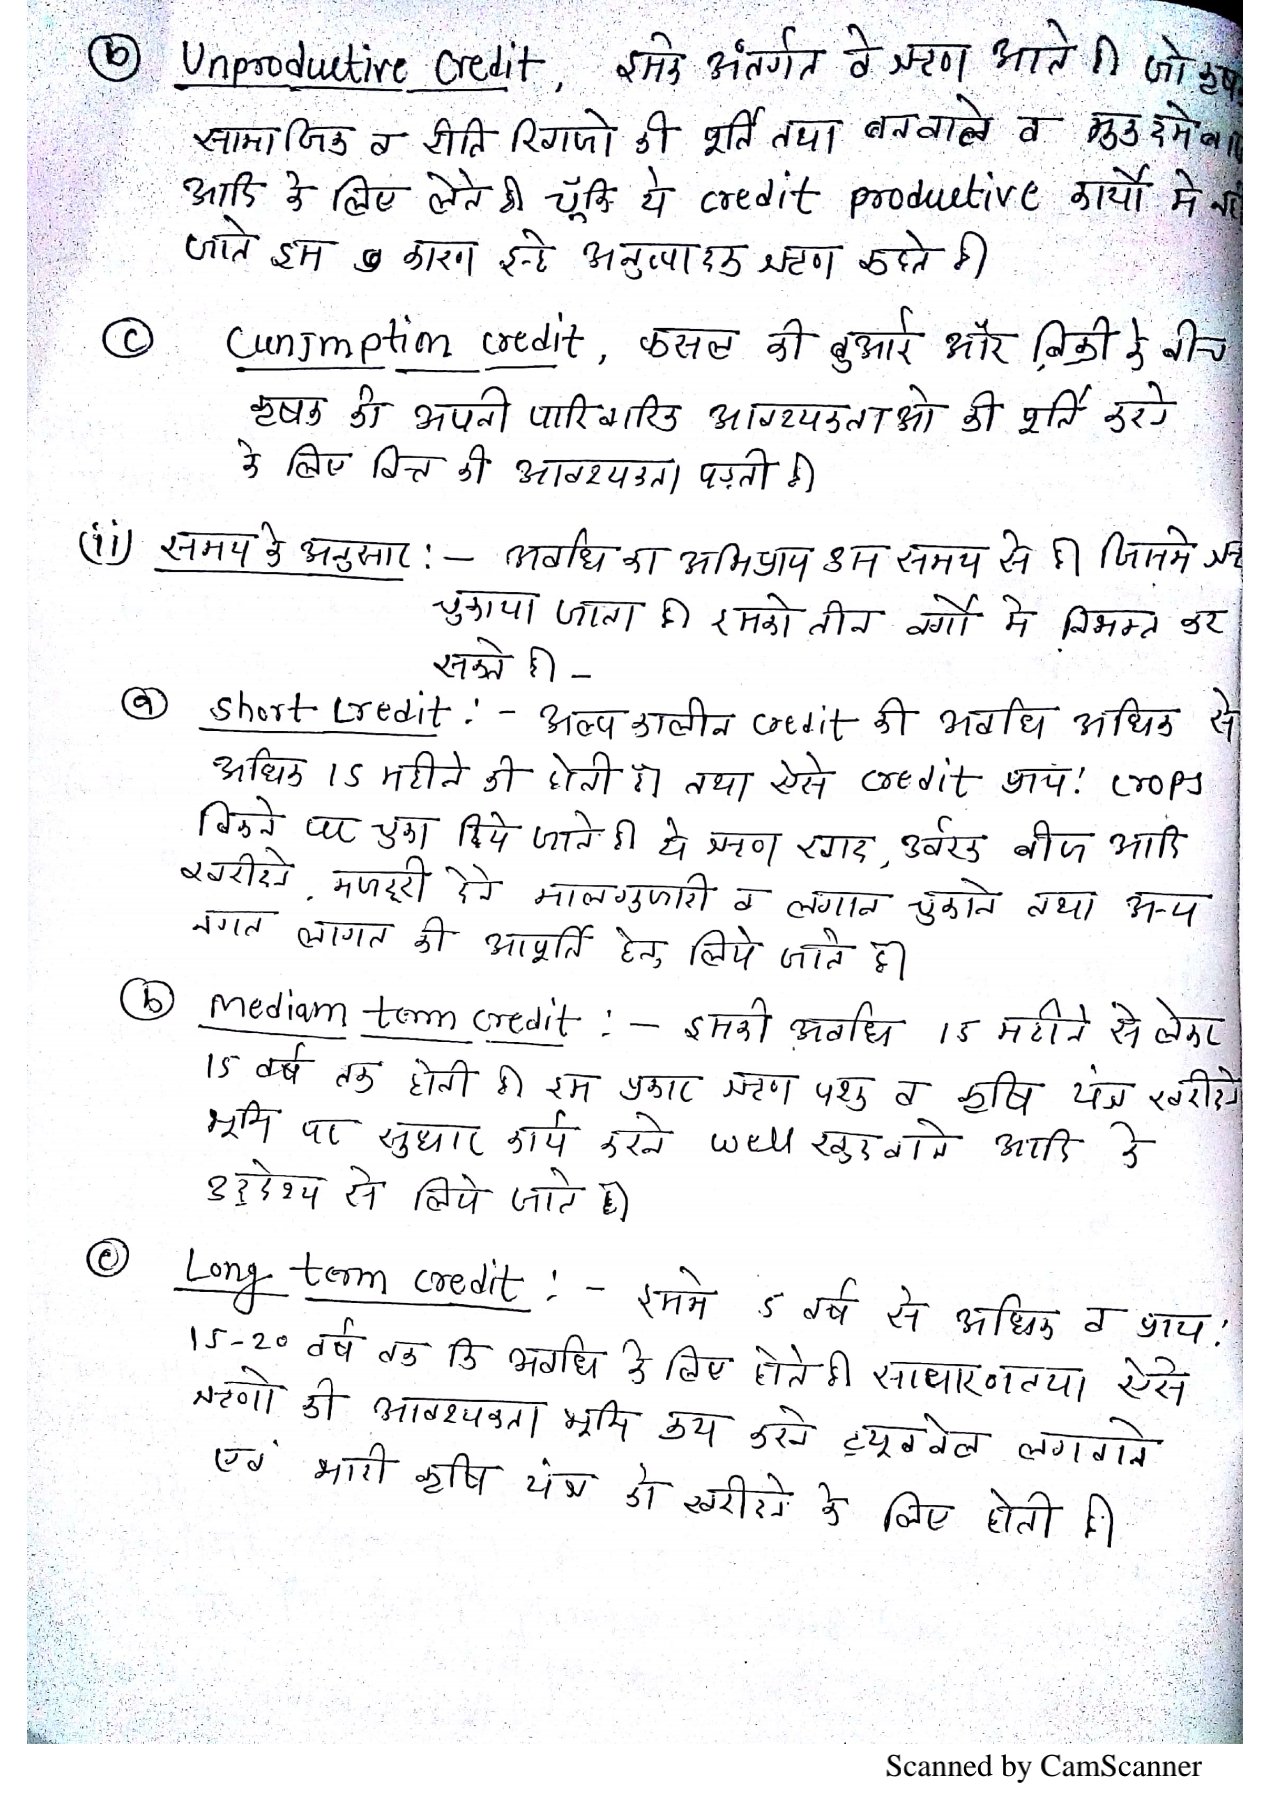 (b) Unproductive Credit, इसके अंतर्गत वे ऋण आते है जो कृषक
सामाजिक व रीति रिवाजो की पूर्ति तथा व मुकदमेबा
आदि के लिए लेते है चूँकि ये credit productive कार्यो मे नही
जाते इस कारण इन्हे अनुत्पादक ऋण कहते है।
(c) Cunsmption credit, फसल की बुआई और बिक्री के बीच
कृषक को अपनी पारिवारिक आवश्यकताओ की पूर्ति करने
के लिए वित्त की आवश्यकता पड़ती है।
(ii) समय के अनुसार :- अवधि का अभिप्राय उस समय से है। जिसमे ऋण
चुकाया जाता है। इसको तीन वर्गों मे विभक्त कर
सकते है -
(a) Short credit :- अल्पकालीन credit की अवधि अधिक से
अधिक 15 महीने की होती है। तथा ऐसे credit प्राय: crops
बिकने पर चुका दिये जाते है ये ऋण खाद, उर्वरक बीज आदि
खरीदने, मजदूरी देने मालगुजारी व लगान चुकाने तथा अन्य
नगत लागत की आपूर्ति हेतु लिये जाते है।
(b) Mediam term credit :- इसकी अवधि 15 महीने से लेकर
15 वर्ष तक होती है इस प्रकार ऋण पशु व कृषि यंत्र खरीदने
भूमि पर सुधार कार्य करने well खुदवाने आदि के
उद्देश्य से लिये जाते है।
(c) Long term credit :- इसमे 5 वर्ष से अधिक व प्राय:
15-20 वर्ष तक कि अवधि के लिए होते है। साधारणतया ऐसे
ऋणो की आवश्यकता भूमि क्रय करने ट्यूबवेल लगवाने
एवं भारी कृषि यंत्र को खरीदने के लिए होती है।
Scanned by CamScanner